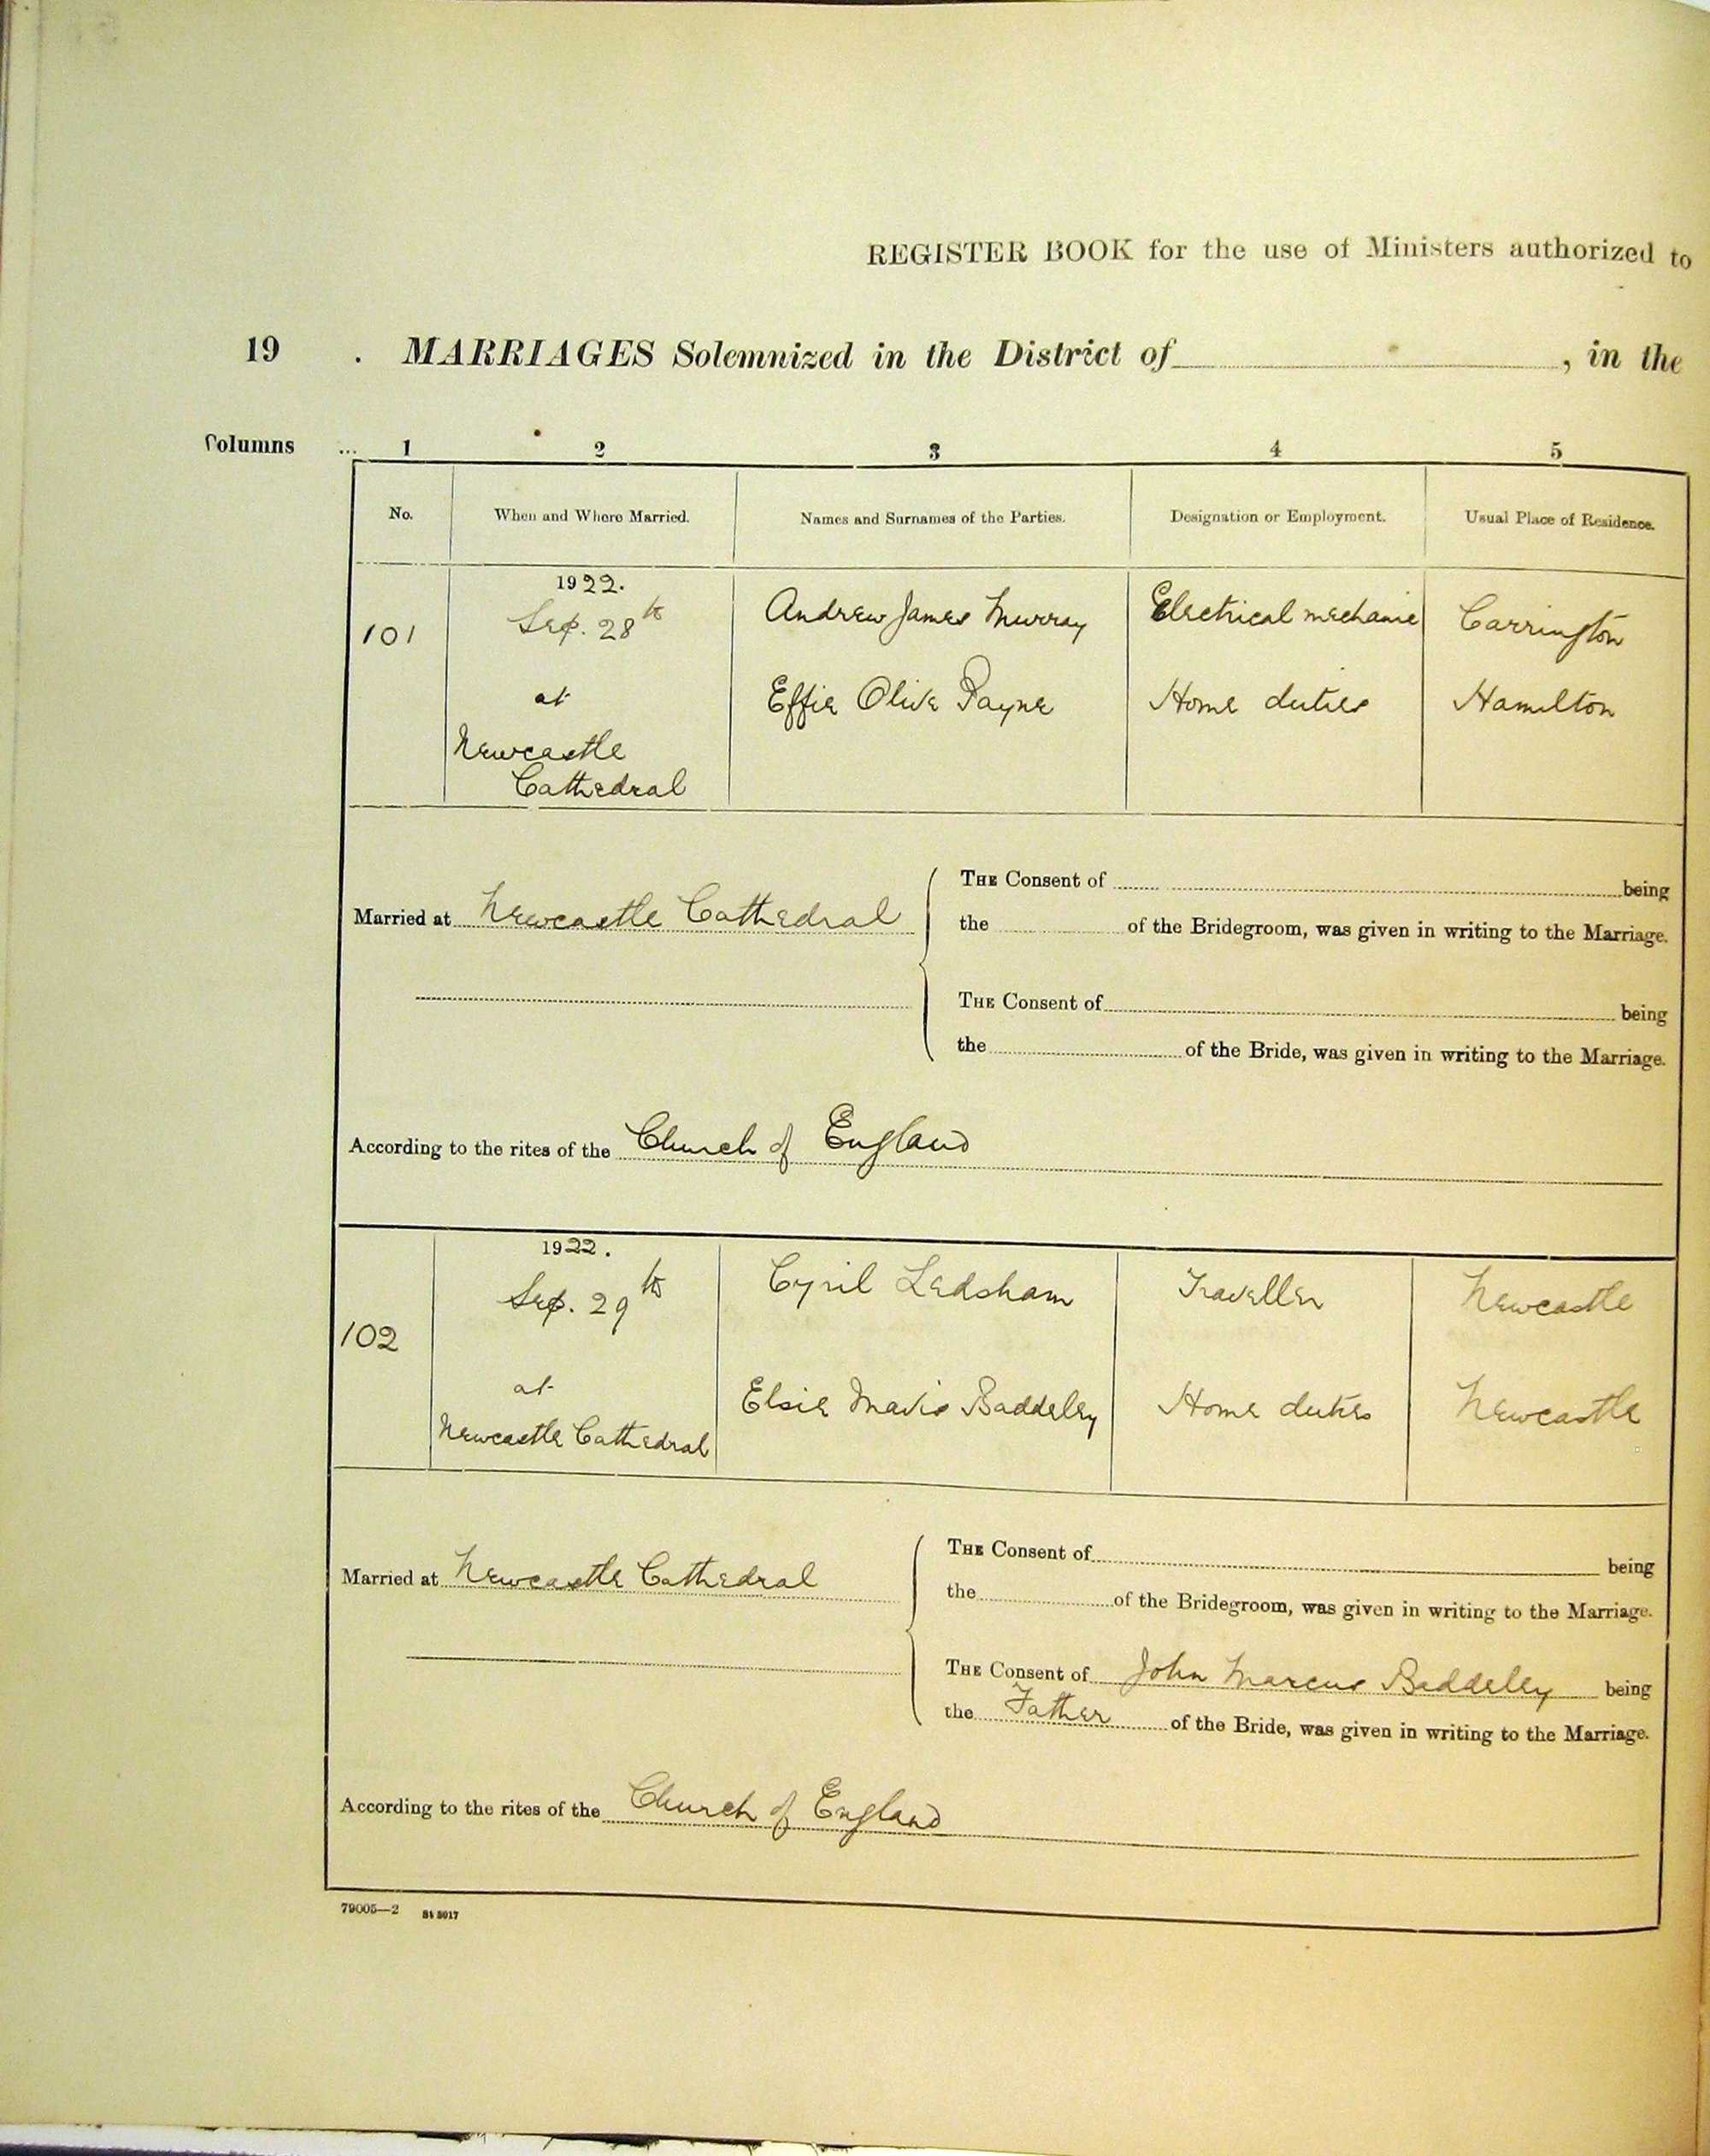 REGISTER BOOK for the use of Ministers authorized to
19 . MARRIAGES Solemnized in the District of , in the
Columns ... 1 2 3 4 5
No. When and Where Married. Names and Surnames of the Parties. Designation or Employment. Usual Place of Residence.
1922.
101 Sep. 28th Andrew James Murray Electrical mechanic Carrington
at Effie Olive Payne Home duties Hamilton
Newcastle
Cathedral
THE Consent of being
Married at Newcastle Cathedral
the of the Bridegroom, was given in writing to the Marriage.
THE Consent of being
the of the Bride, was given in writing to the Marriage.
According to the rites of the Church of England
1922.
Sep. 29th Cyril Ledsham Traveller Newcastle
102
at Elsie Mavis Baddeley Home duties Newcastle
Newcastle Cathedral
THE Consent of being
Married at Newcastle Cathedral
the of the Bridegroom, was given in writing to the Marriage.
THE Consent of John Marcus Baddeley being
the Father of the Bride, was given in writing to the Marriage.
According to the rites of the Church of England
79005—2 St 5017